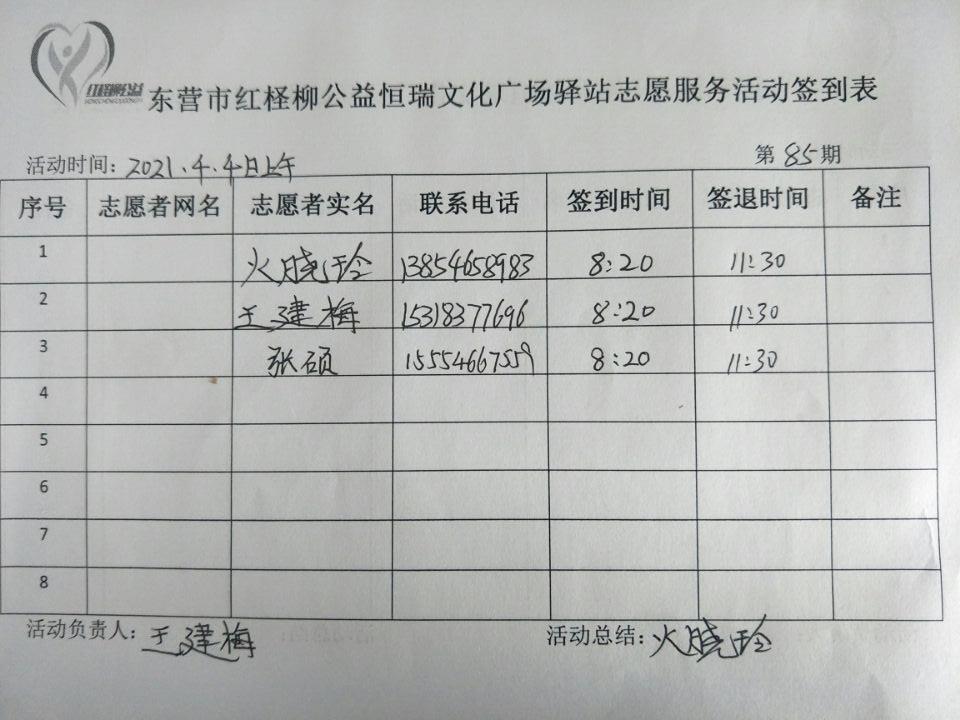 红柽柳公益
东营市红柽柳公益恒瑞文化广场驿站志愿服务活动签到表
活动时间：2021.4.4日上午 第85期
序号 志愿者网名 志愿者实名 联系电话 签到时间 签退时间 备注
1 火晓玲 13854658983 8:20 11:30
2 王建梅 15318377696 8:20 11:30
3 张硕 15554667559 8:20 11:30
4
5
6
7
8
活动负责人：王建梅 活动总结：火晓玲